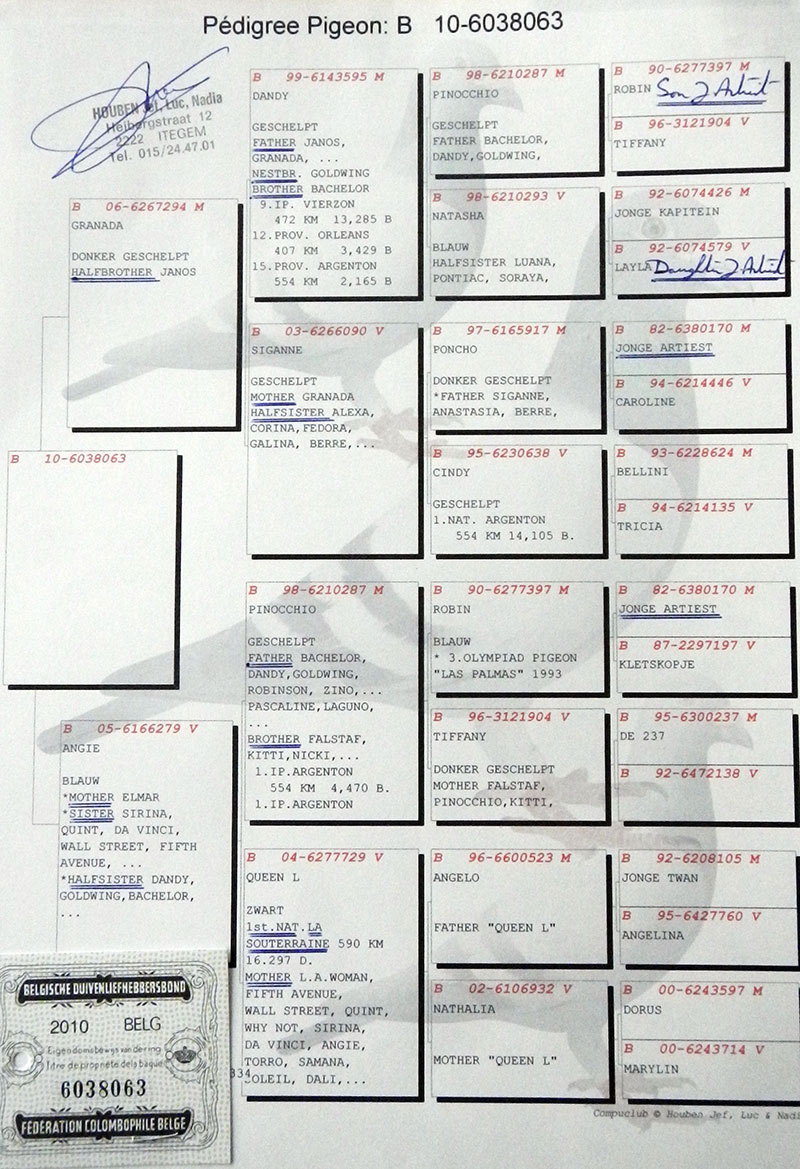 Pédigree Pigeon: B 10-6038063
HOUBEN Jef, Luc, Nadia
Heibergstraat 12
2222 ITEGEM
Tel. 015/24.47.01
B 10-6038063
B 06-6267294 M
GRANADA
DONKER GESCHELPT
HALFBROTHER JANOS
B 05-6166279 V
ANGIE
BLAUW
*MOTHER ELMAR
*SISTER SIRINA,
QUINT, DA VINCI,
WALL STREET, FIFTH
AVENUE, ...
*HALFSISTER DANDY,
GOLDWING,BACHELOR,
...
B 99-6143595 M
DANDY
GESCHELPT
FATHER JANOS,
GRANADA, ...
NESTBR. GOLDWING
BROTHER BACHELOR
9.IP. VIERZON
472 KM 13,285 B
12.PROV. ORLEANS
407 KM 3,429 B
15.PROV. ARGENTON
554 KM 2,165 B
B 03-6266090 V
SIGANNE
GESCHELPT
MOTHER GRANADA
HALFSISTER ALEXA,
CORINA,FEDORA,
GALINA, BERRE,...
B 98-6210287 M
PINOCCHIO
GESCHELPT
FATHER BACHELOR,
DANDY,GOLDWING,
ROBINSON, ZINO,...
PASCALINE,LAGUNO,
...
BROTHER FALSTAF,
KITTI,NICKI,...
1.IP.ARGENTON
554 KM 4,470 B.
1.IP.ARGENTON
B 04-6277729 V
QUEEN L
ZWART
1st.NAT.LA
SOUTERRAINE 590 KM
16.297 D.
MOTHER L.A.WOMAN,
FIFTH AVENUE,
WALL STREET, QUINT,
WHY NOT, SIRINA,
DA VINCI, ANGIE,
TORRO, SAMANA,
SOLEIL, DALI,...
334
B 98-6210287 M
PINOCCHIO
GESCHELPT
FATHER BACHELOR,
DANDY,GOLDWING,
B 98-6210293 V
NATASHA
BLAUW
HALFSISTER LUANA,
PONTIAC, SORAYA,
B 97-6165917 M
PONCHO
DONKER GESCHELPT
*FATHER SIGANNE,
ANASTASIA, BERRE,
B 95-6230638 V
CINDY
GESCHELPT
1.NAT. ARGENTON
554 KM 14,105 B.
B 90-6277397 M
ROBIN
BLAUW
* 3.OLYMPIAD PIGEON
"LAS PALMAS" 1993
B 96-3121904 V
TIFFANY
DONKER GESCHELPT
MOTHER FALSTAF,
PINOCCHIO,KITTI,
B 96-6600523 M
ANGELO
FATHER "QUEEN L"
B 02-6106932 V
NATHALIA
MOTHER "QUEEN L"
B 90-6277397 M
ROBIN Son J Artiest
B 96-3121904 V
TIFFANY
B 92-6074426 M
JONGE KAPITEIN
B 92-6074579 V
LAYLA Daughter J Artiest
B 82-6380170 M
JONGE ARTIEST
B 94-6214446 V
CAROLINE
B 93-6228624 M
BELLINI
B 94-6214135 V
TRICIA
B 82-6380170 M
JONGE ARTIEST
B 87-2297197 V
KLETSKOPJE
B 95-6300237 M
DE 237
B 92-6472138 V
B 92-6208105 M
JONGE TWAN
B 95-6427760 V
ANGELINA
B 00-6243597 M
DORUS
B 00-6243714 V
MARYLIN
Compuclub © Houben Jef, Luc & Nadi
BELGISCHE DUIVENLIEFHEBBERSBOND
2010 BELG
Eigendomsbewijs van de ring
Titre de propriété de la bague
6038063
FÉDÉRATION COLOMBOPHILE BELGE